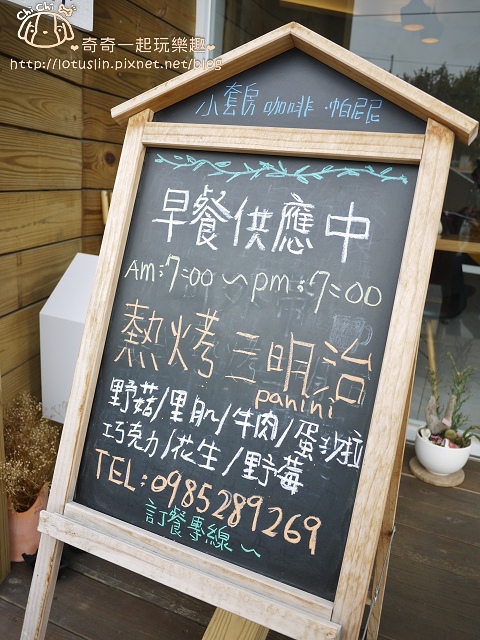 Chi Chi Agi
奇奇一起玩樂趣
http://lotuslin.pixnet.net/blog
小套房 咖啡·帕尼尼
早餐供應中
AM:7:00 ~ pm:7:00
熱烤三明治
panini
野菇/里肌/牛肉/蛋沙拉
巧克力/花生/野莓
TEL:0985289269
訂餐專線~